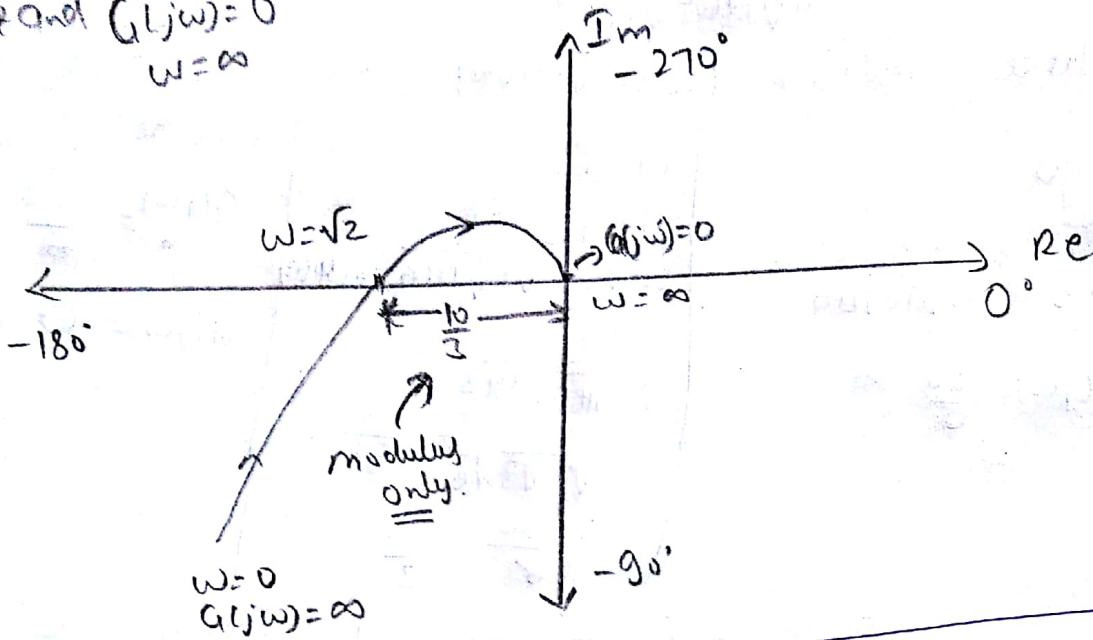 and G(jω)=0
ω=∞
Im
-270°
ω=√2
G(jω)=0
Re
ω=∞
0°
-180°
10/3
modulus
only.
-90°
ω=0
G(jω)=∞